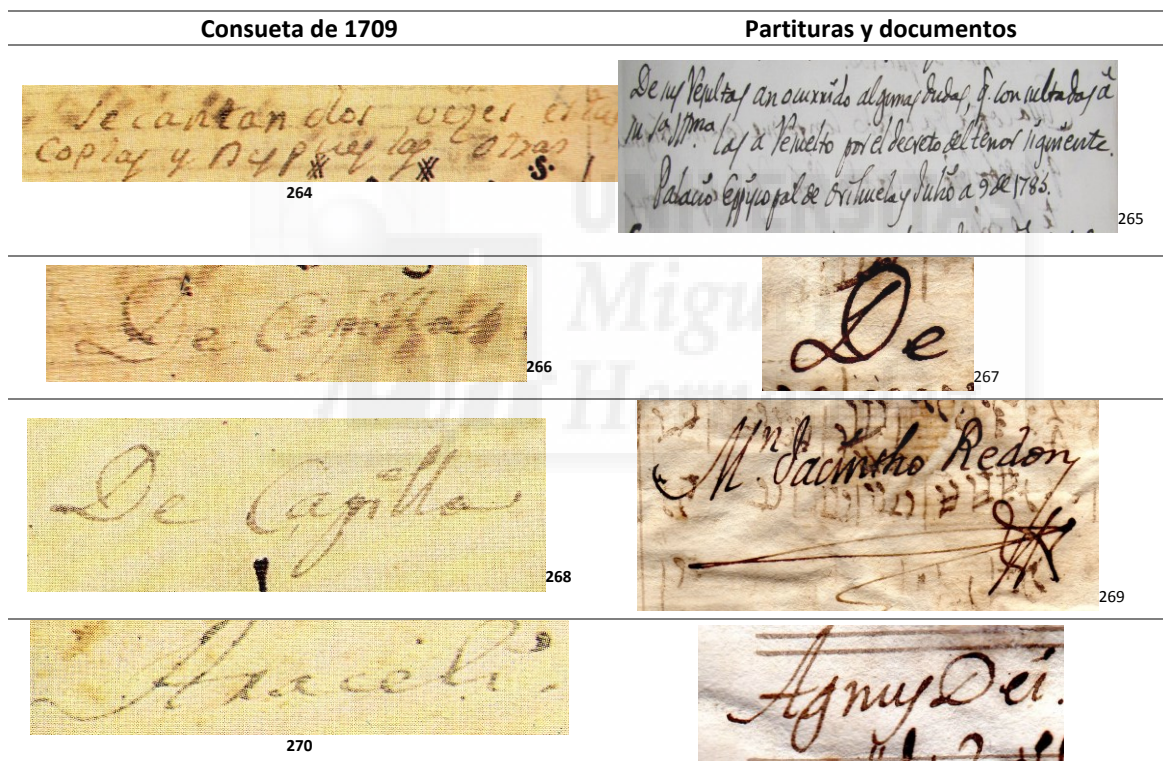 Consueta de 1709 Partituras y documentos
Se cantan dos vezes estas
coplas y
las otras
.S.
264
De sus Resultas an ocurrido algunas dudas, q. consultadas á
su Sa. Yllma. las a Resuelto por el decreto del tenor siguiente.
Palacio Episcopal de Orihuela y Julio a 9 de 1785.
265
De Capilla
266
De
267
De Capilla
268
Mn. Jacintho Redon
269
Araceli.
270
Agnus Dei.
UNIVERSITAS
Miguel
Hernández